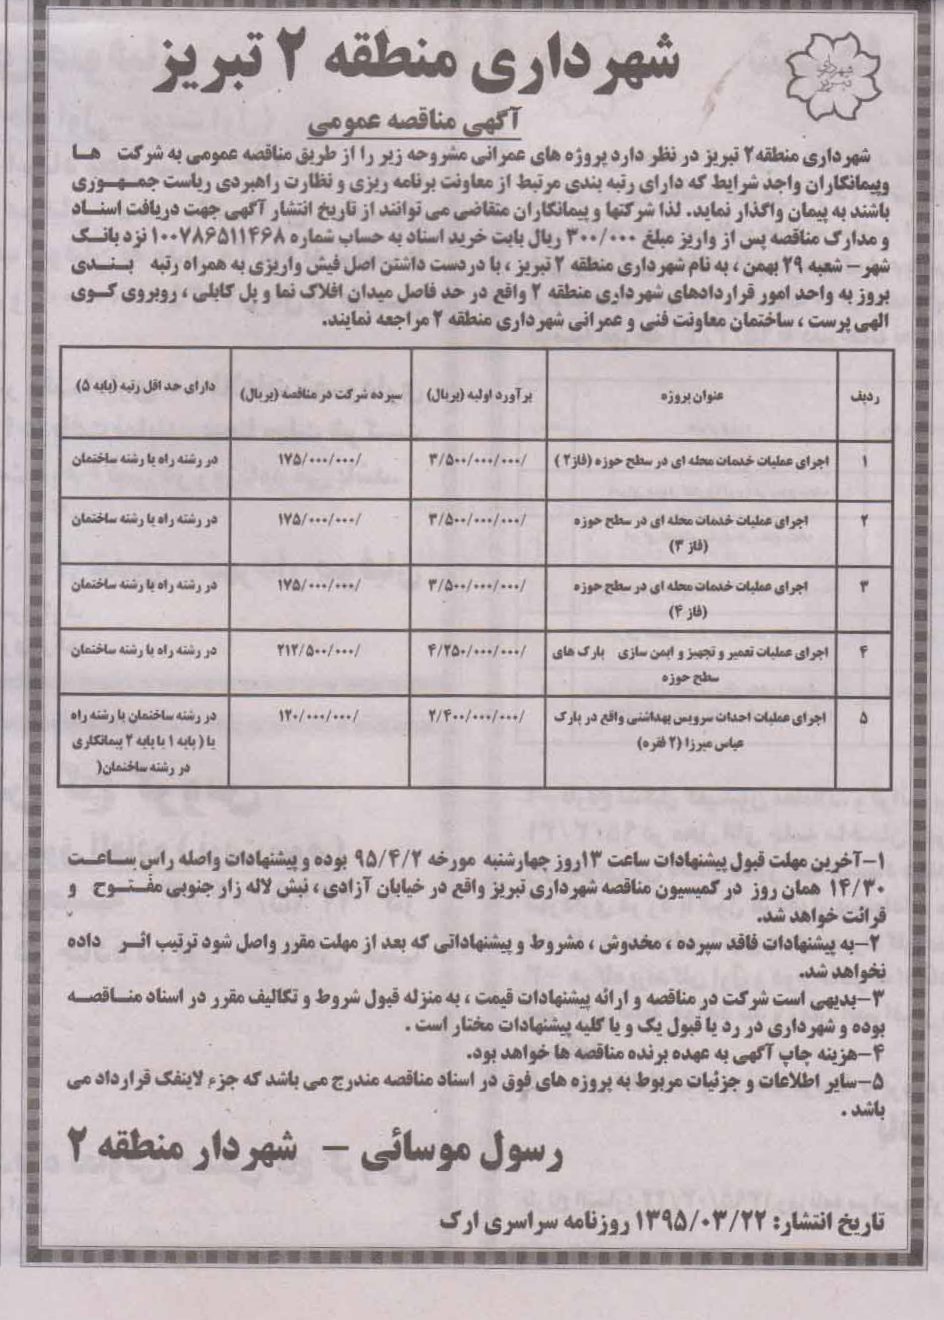 شهرداری تبریز
شهرداری منطقه ۲ تبریز
آگهی مناقصه عمومی
شهرداری منطقه۲ تبریز در نظر دارد پروژه های عمرانی مشروحه زیر را از طریق مناقصه عمومی به شرکت ها
وپیمانکاران واجد شرایط که دارای رتبه بندی مرتبط از معاونت برنامه ریزی و نظارت راهبردی ریاست جمهوری
باشند به پیمان واگذار نماید. لذا شرکتها و پیمانکاران متقاضی می توانند از تاریخ انتشار آگهی جهت دریافت اسناد
و مدارک مناقصه پس از واریز مبلغ ۳۰۰/۰۰۰ ریال بابت خرید اسناد به حساب شماره ۱۰۰۷۸۶۵۱۱۴۶۸ نزد بانک
شهر– شعبه ۲۹ بهمن ، به نام شهرداری منطقه ۲ تبریز ، با دردست داشتن اصل فیش واریزی به همراه رتبه بندی
بروز به واحد امور قراردادهای شهرداری منطقه ۲ واقع در حد فاصل میدان افلاک نما و پل کابلی ، روبروی کوی
الهی پرست ، ساختمان معاونت فنی و عمرانی شهرداری منطقه ۲ مراجعه نمایند.
ردیف عنوان پروژه برآورد اولیه (بریال) سپرده شرکت در مناقصه (بریال) دارای حداقل رتبه (پایه ۵)
۱ اجرای عملیات خدمات محله ای در سطح حوزه (فاز۲ ) ۳/۵۰۰/۰۰۰/۰۰۰/ ۱۷۵/۰۰۰/۰۰۰/ در رشته راه یا رشته ساختمان
۲ اجرای عملیات خدمات محله ای در سطح حوزه ۳/۵۰۰/۰۰۰/۰۰۰/ ۱۷۵/۰۰۰/۰۰۰/ در رشته راه یا رشته ساختمان
(فاز ۳)
۳ اجرای عملیات خدمات محله ای در سطح حوزه ۳/۵۰۰/۰۰۰/۰۰۰/ ۱۷۵/۰۰۰/۰۰۰/ در رشته راه یا رشته ساختمان
(فاز ۴)
۴ اجرای عملیات تعمیر و تجهیز و ایمن سازی پارک های ۴/۲۵۰/۰۰۰/۰۰۰/ ۲۱۲/۵۰۰/۰۰۰/ در رشته راه یا رشته ساختمان
سطح حوزه
۵ اجرای عملیات احداث سرویس بهداشتی واقع در پارک ۲/۴۰۰/۰۰۰/۰۰۰/ ۱۲۰/۰۰۰/۰۰۰/ در رشته ساختمان یا رشته راه
عباس میرزا (۲ فقره) یا ( پایه ۱ یا پایه ۲ پیمانکاری
در رشته ساختمان(
۱–آخرین مهلت قبول پیشنهادات ساعت ۱۳روز چهارشنبه مورخه ۹۵/۴/۲ بوده و پیشنهادات واصله راس ساعت
۱۴/۳۰ همان روز در کمیسیون مناقصه شهرداری تبریز واقع در خیابان آزادی ، نبش لاله زار جنوبی مفتوح و
قرائت خواهد شد.
۲–به پیشنهادات فاقد سپرده ، مخدوش ، مشروط و پیشنهاداتی که بعد از مهلت مقرر واصل شود ترتیب اثر داده
نخواهد شد.
۳–بدیهی است شرکت در مناقصه و ارائه پیشنهادات قیمت ، به منزله قبول شروط و تکالیف مقرر در اسناد مناقصه
بوده و شهرداری در رد یا قبول یک و یا کلیه پیشنهادات مختار است .
۴–هزینه چاپ آگهی به عهده برنده مناقصه ها خواهد بود.
۵–سایر اطلاعات و جزئیات مربوط به پروژه های فوق در اسناد مناقصه مندرج می باشد که جزء لاینفک قرارداد می
باشد .
رسول موسائی – شهردار منطقه ۲
تاریخ انتشار: ۱۳۹۵/۰۳/۲۲ روزنامه سراسری ارک